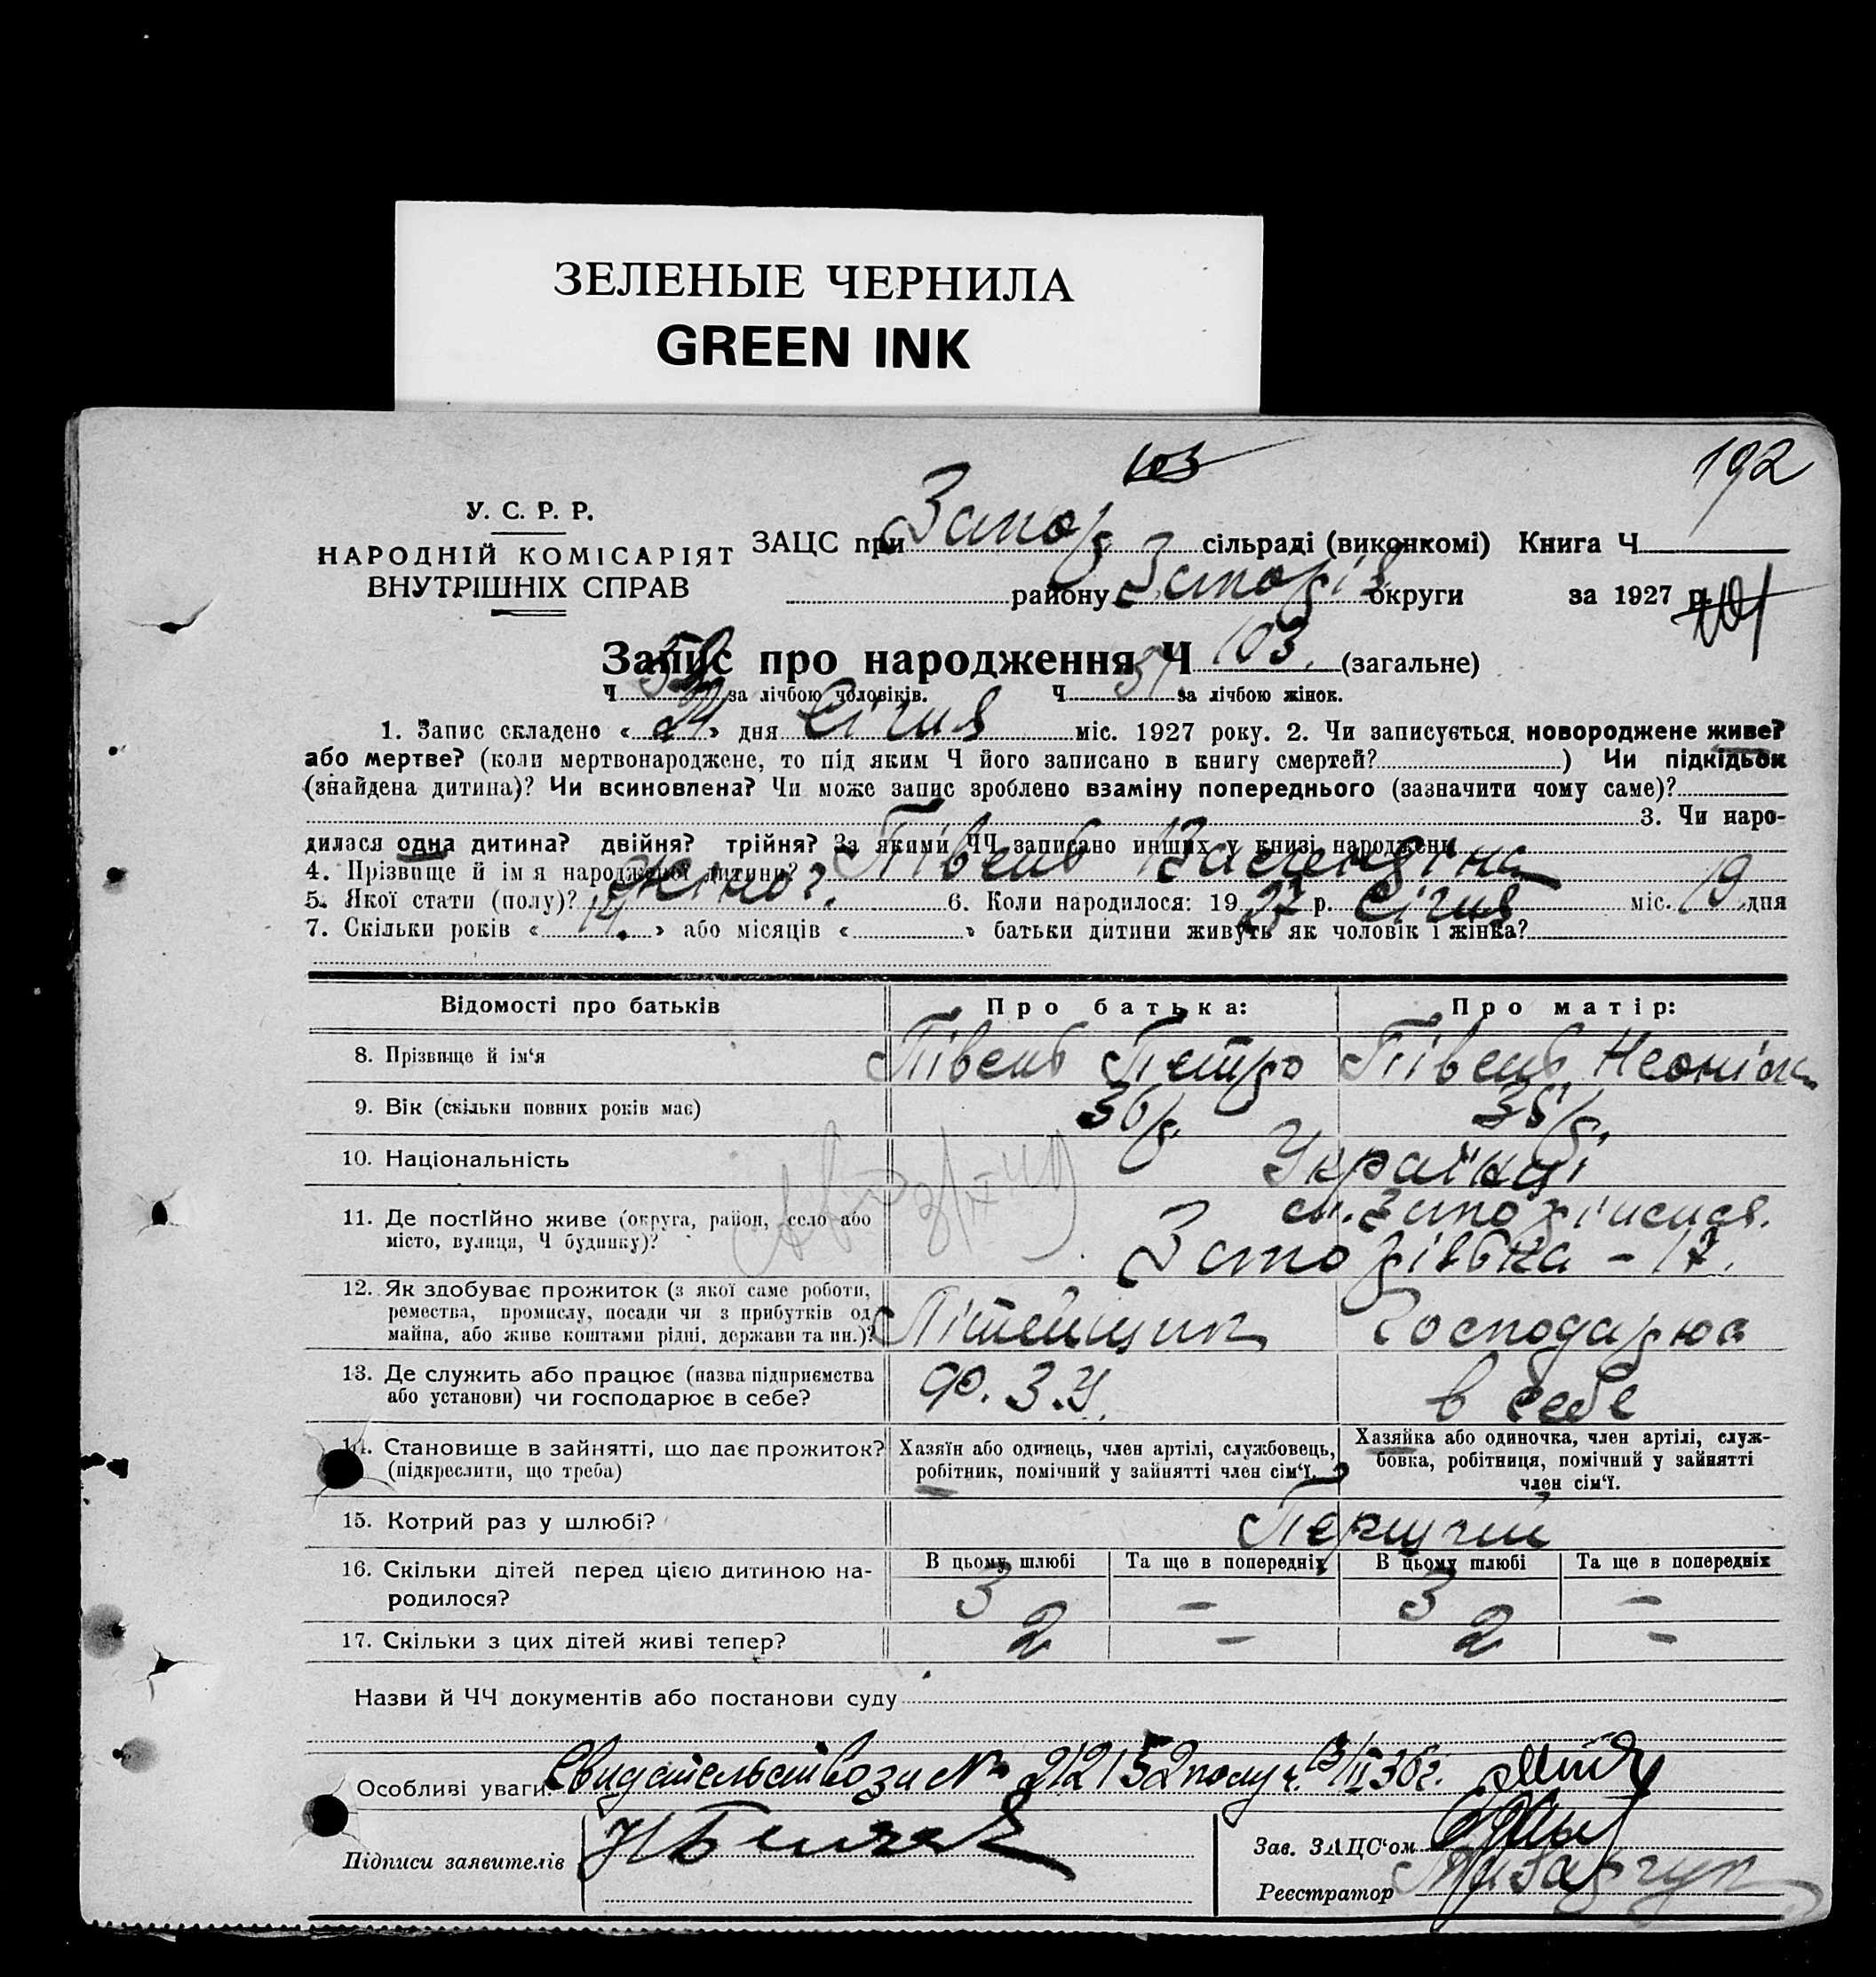 ЗЕЛЕНЫЕ ЧЕРНИЛА
GREEN INK
103
192
У. С. Р. Р.
НАРОДНІЙ КОМІСАРІЯТ
ВНУТРІШНІХ СПРАВ
ЗАЦС при Запор сільраді (виконкомі) Книга Ч
району Запоріз округи за 1927 р.
101
Запис про народження Ч 103. (загальне)
Ч за лічбою чоловіків. Ч 51 за лічбою жінок.
1. Запис складено « 24 » дня Січня міс. 1927 року. 2. Чи записується новороджене живе?
або мертве? (коли мертвонароджене, то під яким Ч його записано в книгу смертей? ) Чи підкідьок
(знайдена дитина)? Чи всиновлена? Чи може запис зроблено взаміну попереднього (зазначити чому саме)?
3. Чи наро-
дилася одна дитина? двійня? трійня? За якими ЧЧ записано инших у книзі народжень
4. Прізвище й ім'я народженої дитини? Півень Валентіна
5. Якої стати (полу)? Жіно? 6. Коли народилося: 19 27 р. Січня міс. 19 дня
7. Скільки років « 14. » або місяців « » батьки дитини живуть як чоловік і жінка?
Відомості про батьків Про батька: Про матір:
8. Прізвище й ім'я Півень Петро Півень Неоніла
9. Вік (скільки повних років має) 36 р. 35 р.
10. Національність Українці
11. Де постійно живе (округа, район, село або
місто, вулиця, Ч будинку)?
12. Як здобуває прожиток (з якої саме роботи,
ремества, промислу, посади чи з прибутків од
майна, або живе коштами рідні, держави та ин.)? Літейщик Господарює
13. Де служить або працює (назва підприємства
або установи) чи господарює в себе? Ф. З. У. в себе
14. Становище в зайнятті, що дає прожиток?
(підкреслити, що треба)
Хазяїн або одинець, член артілі, службовець,
робітник, помічний у зайнятті член сім'ї.
Хазяйка або одиночка, член артілі, служ-
бовка, робітниця, помічний у зайнятті
член сім'ї.
15. Котрий раз у шлюбі? Перший
16. Скільки дітей перед цією дитиною на-
родилося?
В цьому шлюбі Та ще в попередніх В цьому шлюбі Та ще в попередніх
3 - 3 -
17. Скільки з цих дітей живі тепер? 2 - 2 -
Назви й ЧЧ документів або постанови суду
Особливі уваги: Свидетельство за № 212152 получ. 13/II 36 г.
Підписи заявителів
Зав. ЗАЦС'ом
Реєстратор